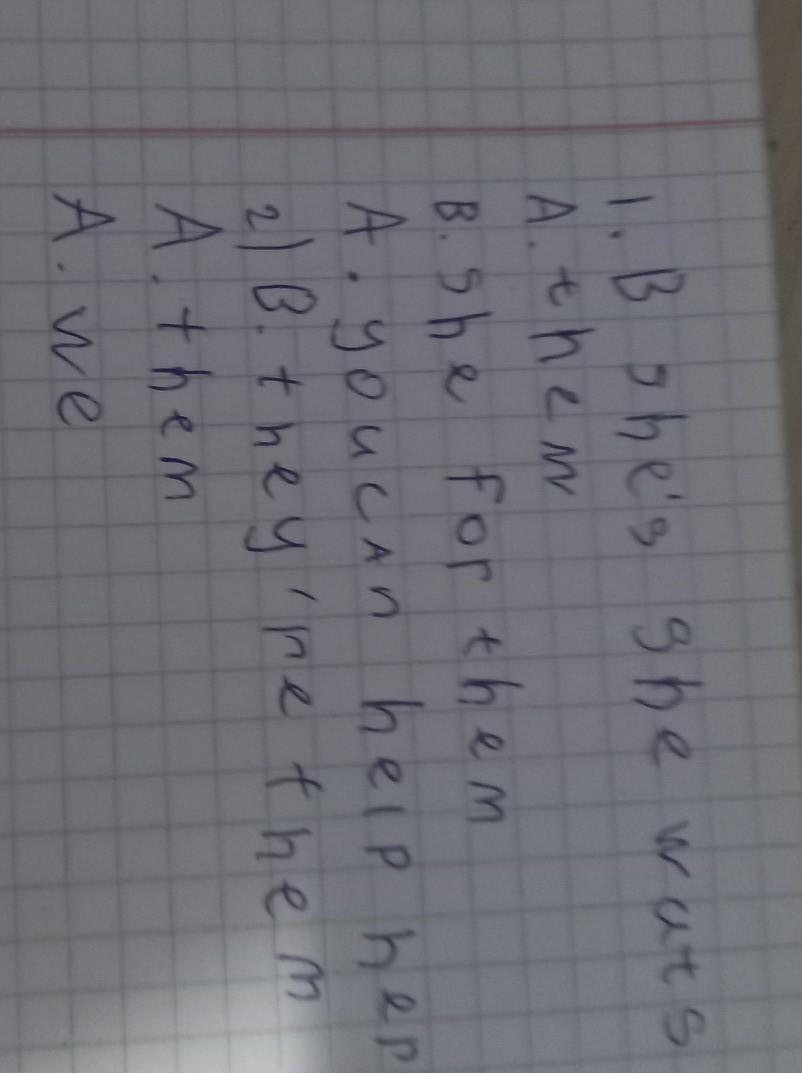 1. B she's she wats
A. them
B. she for them
A. you can help her
2) B. they're them
A. them
A. we